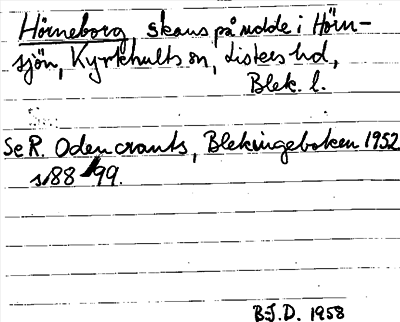 Hörneborg, skans på udde i Hörn-
sjön, Kyrkhults sn, Listers hd,
Blek. l.
Se R. Odencrants, Blekingeboken 1952
s. 88-99.
B-J. D. 1958